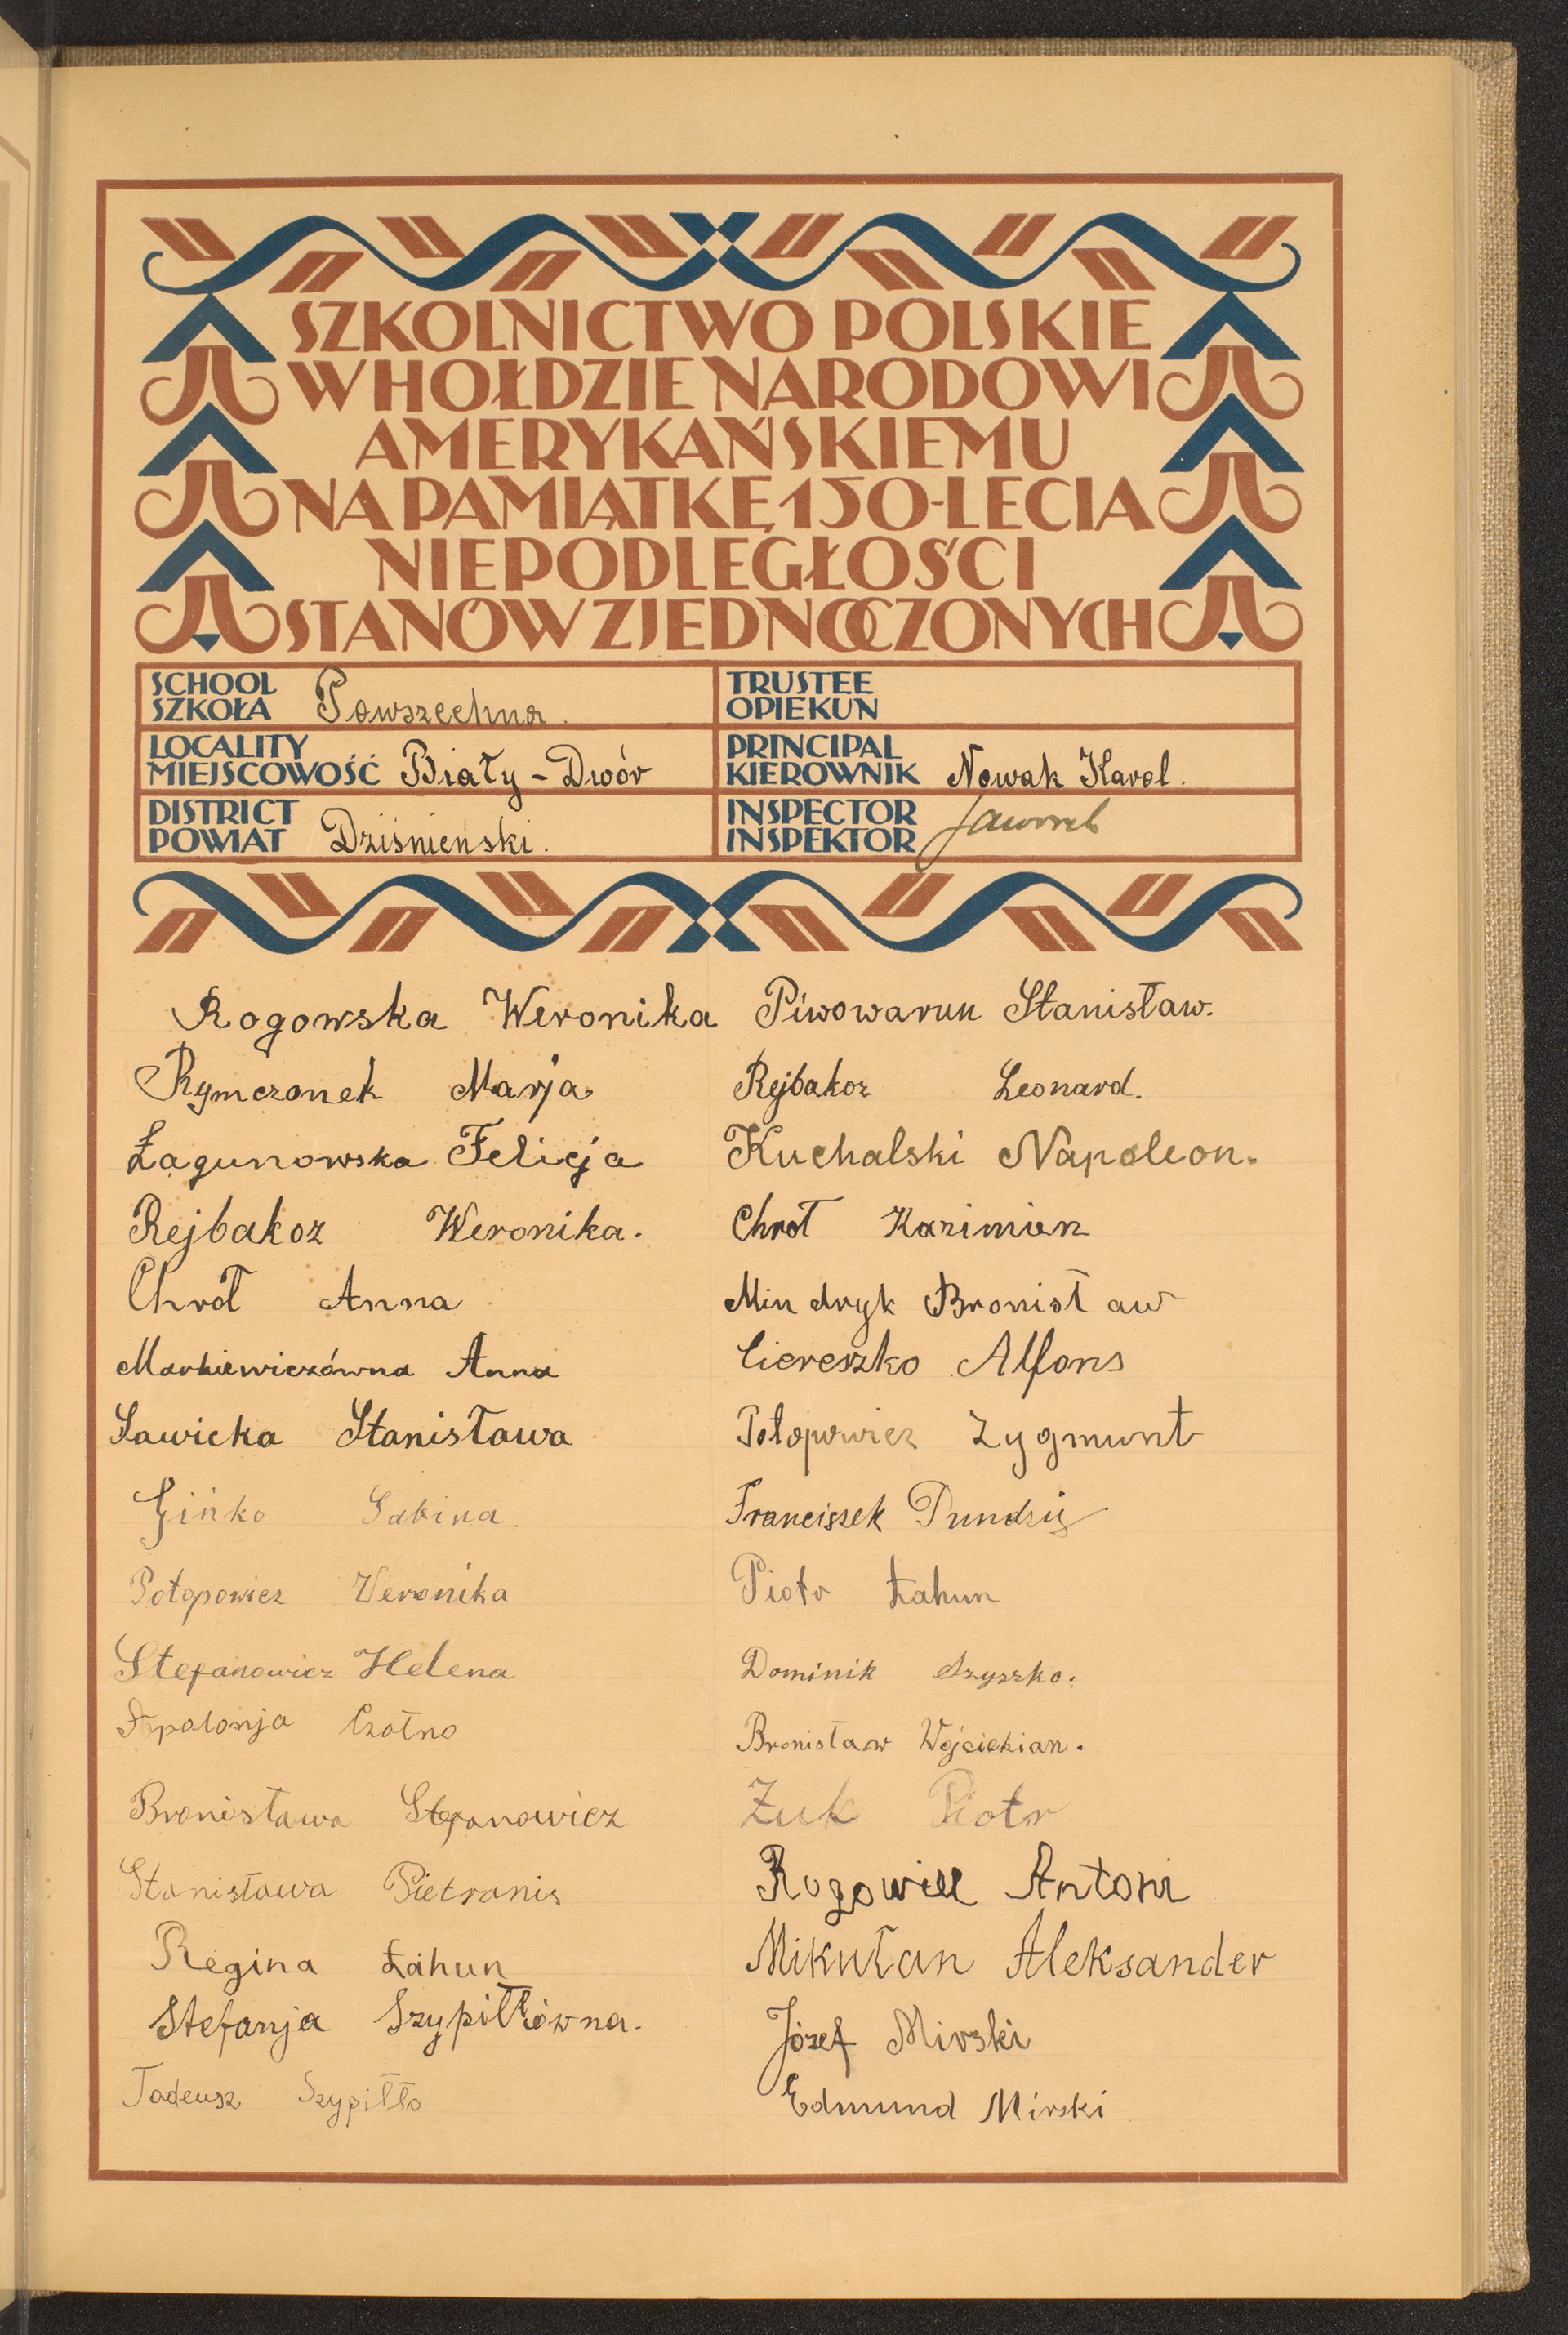 SZKOLNICTWO POLSKIE
W HOŁDZIE NARODOWI
AMERYKAŃSKIEMU
NA PAMIĄTKĘ 150-LECIA
NIEPODLEGŁOŚCI
STANÓW ZJEDNOCZONYCH
SCHOOL
SZKOŁA Powszechna.
TRUSTEE
OPIEKUN
LOCALITY
MIEJSCOWOŚĆ Biały-Dwór
PRINCIPAL
KIEROWNIK Nowak Karol.
DISTRICT
POWIAT Dziśnieński.
INSPECTOR
INSPEKTOR
Rogowska Weronika
Rymczonek Marja
Łagunowska Felicja
Rejbakoz Weronika.
Chrół Anna
Markiewiczówna Anna
Sawicka Stanisława
Gińko Sabina.
Potopowicz Weronika
Stefanowicz Helena
Apolonja Czołno
Bronisława Stefanowicz
Stanisława Pietranis
Regina Łahun
Stefanja Szypiłłówna.
Tadeusz Szypiłło
Piwowarun Stanisław.
Rejbakoz Leonard.
Kuchalski Napoleon.
Chrół Kazimierz
Mindryk Bronisław
Ciereszko Alfons
Potopowicz Zygmunt
Franciszek Pundzię
Piotr Łahun
Dominik Szyszko.
Bronisław
Żuk Piotr
Rogowicz Antoni
Mikułan Aleksander
Józef Mirski
Edmund Mirski